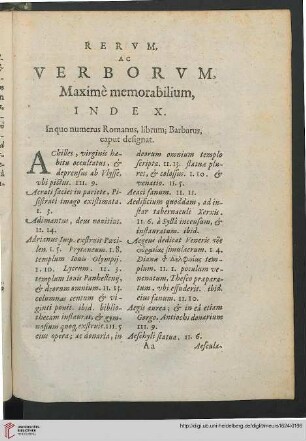 RERVM.
AC
VERBORVM,
Maximè memorabilium,
INDEX.
In quo numerus Romanus, librum; Barbarus,
caput designat.
Achilles, virginis ha-
bitu occultatus, &
deprensus ab Vlysse,
vbi pictus. III. 9.
Acrati facies in pariete, Pi-
sistrati imago existimata.
I. 5.
Adimantus, dens nauticus.
II. 14.
Adrianus Imp. exstruit Pacī-
lon I. 5. Prytaneum. I. 8.
templum Iouis Olympij.
I. 10. Lyceum. II. 3.
templum Iouis Panhellenij,
& deorum omnium. II. 13.
columnas centum & vi-
ginti ponit. ibid. biblio-
thecam instaurat, & gym-
nasium quoq; exstruit. III 5
eius opera; ac donaria, in
deorum omnium templo
scripta. II. 13. statuæ plu-
res, & colossus. I. 10. &
venatio. II. 5.
Aeaci fanum. II. 11.
Aedificium quoddam, ad in-
star tabernaculi Xerxis.
II. 6. à Syllâ incensum, &
instauratum. ibid.
Aegeus dedicat Veneris
simulacrum. I. 4.
Dianæ & tem-
plum. II. 1. poculum ve-
nenatum, Theseo præpara-
tum, vbi effuderit. ibid.
eius fanum. II. 10.
Aegis aurea; & in eâ etiam
Gorgo, Antiochi donarium
III. 9.
Aeschyli statua. II. 6.
Aa
Aescula-
http://digi.ub.uni-heidelberg.de/diglit/meursi1624/0196
UNIVERSITÄTS-
BIBLIOTHEK
HEIDELBERG